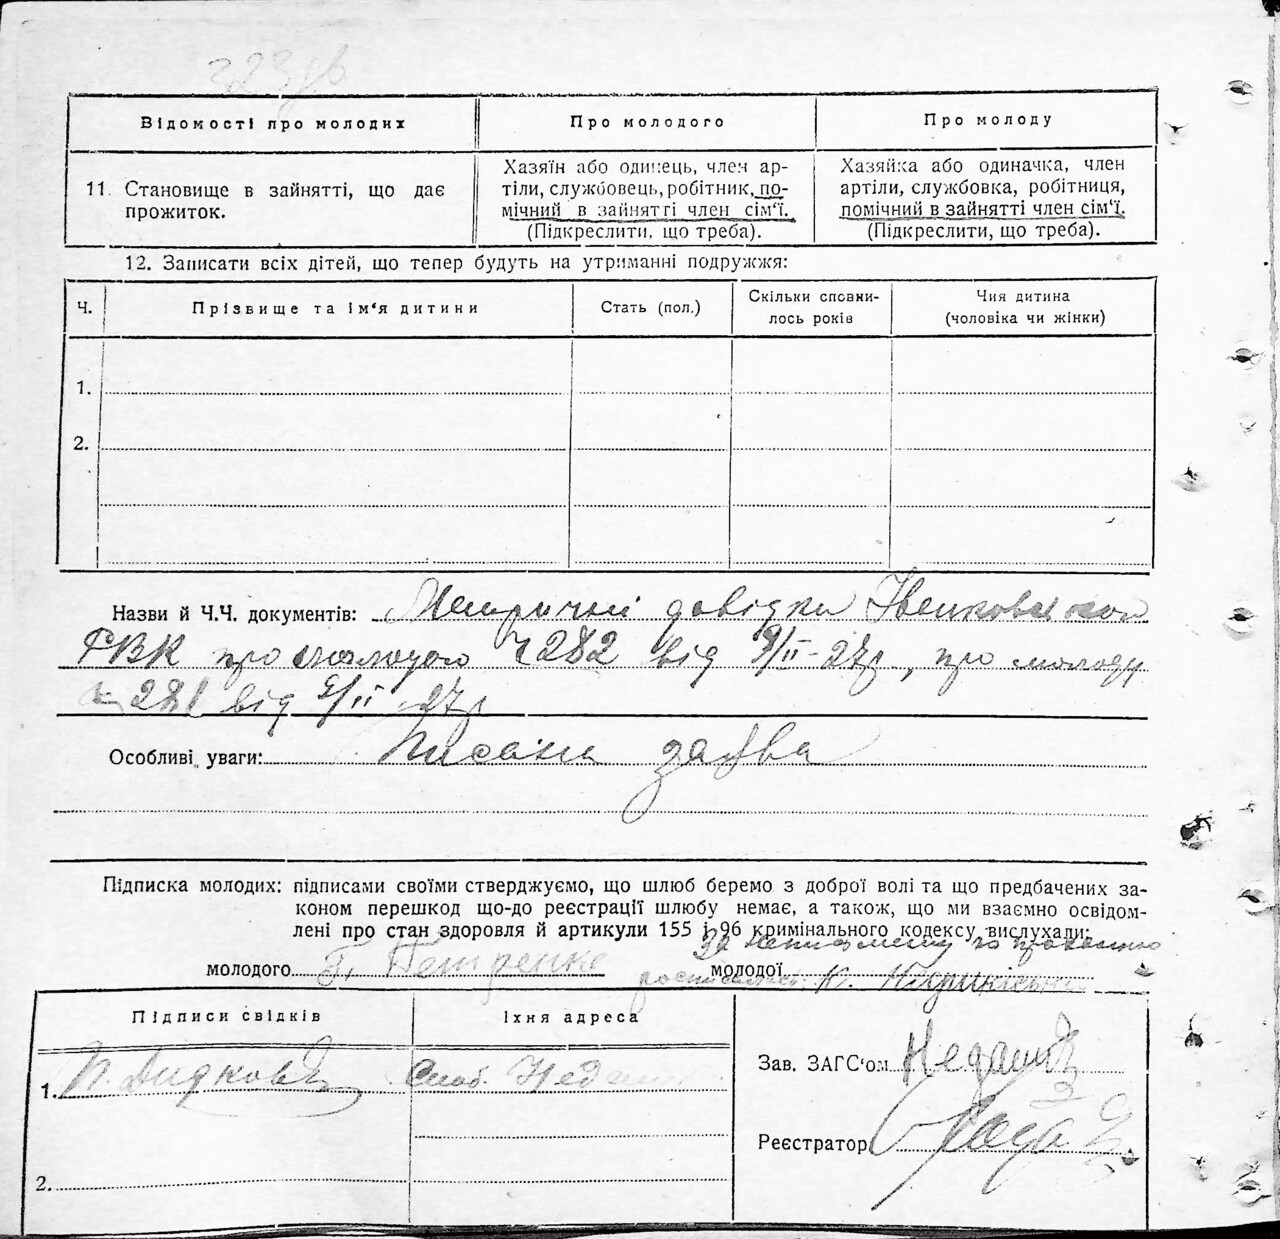 Відомості про молодих
Про молодого
Про молоду
11. Становище в зайнятті, що дає
прожиток.
Хазяїн або одинець, член ар-
тіли, службовець, робітник, по-
мічний в зайнятті член сім'ї.
(Підкреслити, що треба).
Хазяйка або одиначка, член
артіли, службовка, робітниця,
помічний в зайнятті член сім'ї.
(Підкреслити, що треба).
12. Записати всіх дітей, що тепер будуть на утриманні подружжя:
Ч.
Прізвище та ім'я дитини
Стать (пол.)
Скільки сповни-
лось років
Чия дитина
(чоловіка чи жінки)
1.
2.
Назви й Ч.Ч. документів: Метричні довідки
РВК про молодого 282 від 9/II-27р., про молоду
281 від 9/II 27р
Особливі уваги: Писана заява
Підписка молодих: підписами своїми стверджуємо, що шлюб беремо з доброї волі та що предбачених за-
коном перешкод що-до реєстрації шлюбу немає, а також, що ми взаємно освідом-
лені про стан здоровля й артикули 155 і 96 кримінального кодексу вислухали:
за неписьменну
молодого Г. Петренко
молодої
Підписи свідків
Їхня адреса
1.
Слоб.
2.
Зав. ЗАГС'ом
Реєстратор